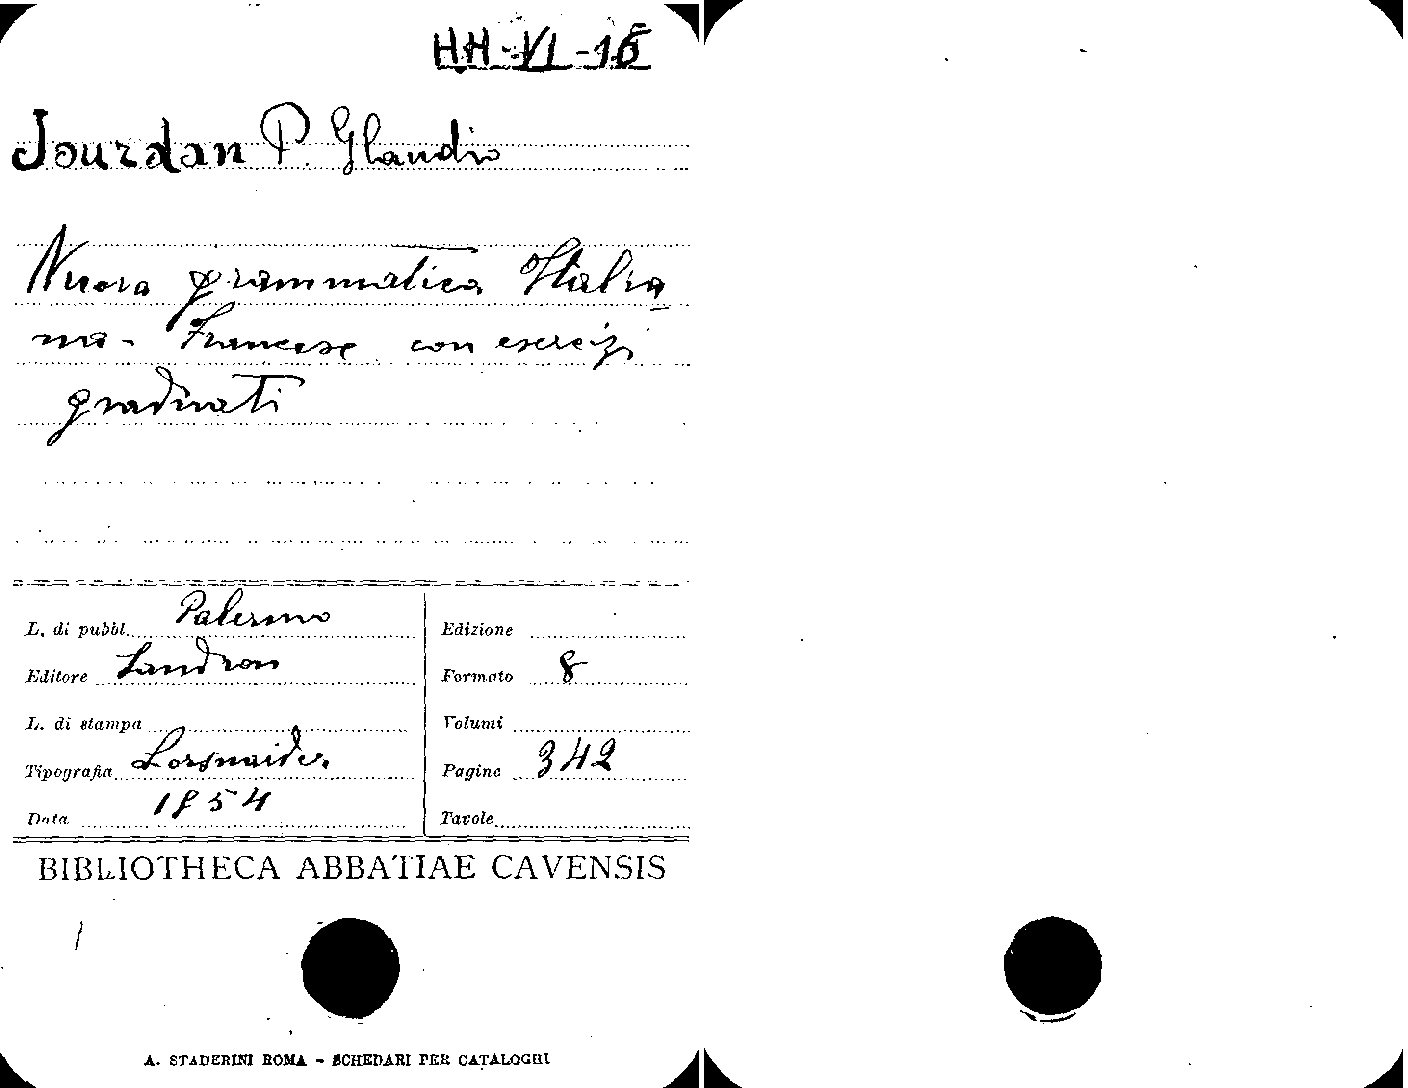 HH-VI-15
Jourdan P. Glaudio
Nuova grammatica Italia
na - Francese con esercizi
graduati
L. di pubbl. Palermo
Edizione
Editore Landron
Formato 8
L. di stampa
Volumi
Tipografia Lorsnaider
Pagine 342
Data 1854
Tavole
BIBLIOTHECA ABBATIAE CAVENSIS
A. STADERINI ROMA - SCHEDARI PER CATALOGHI